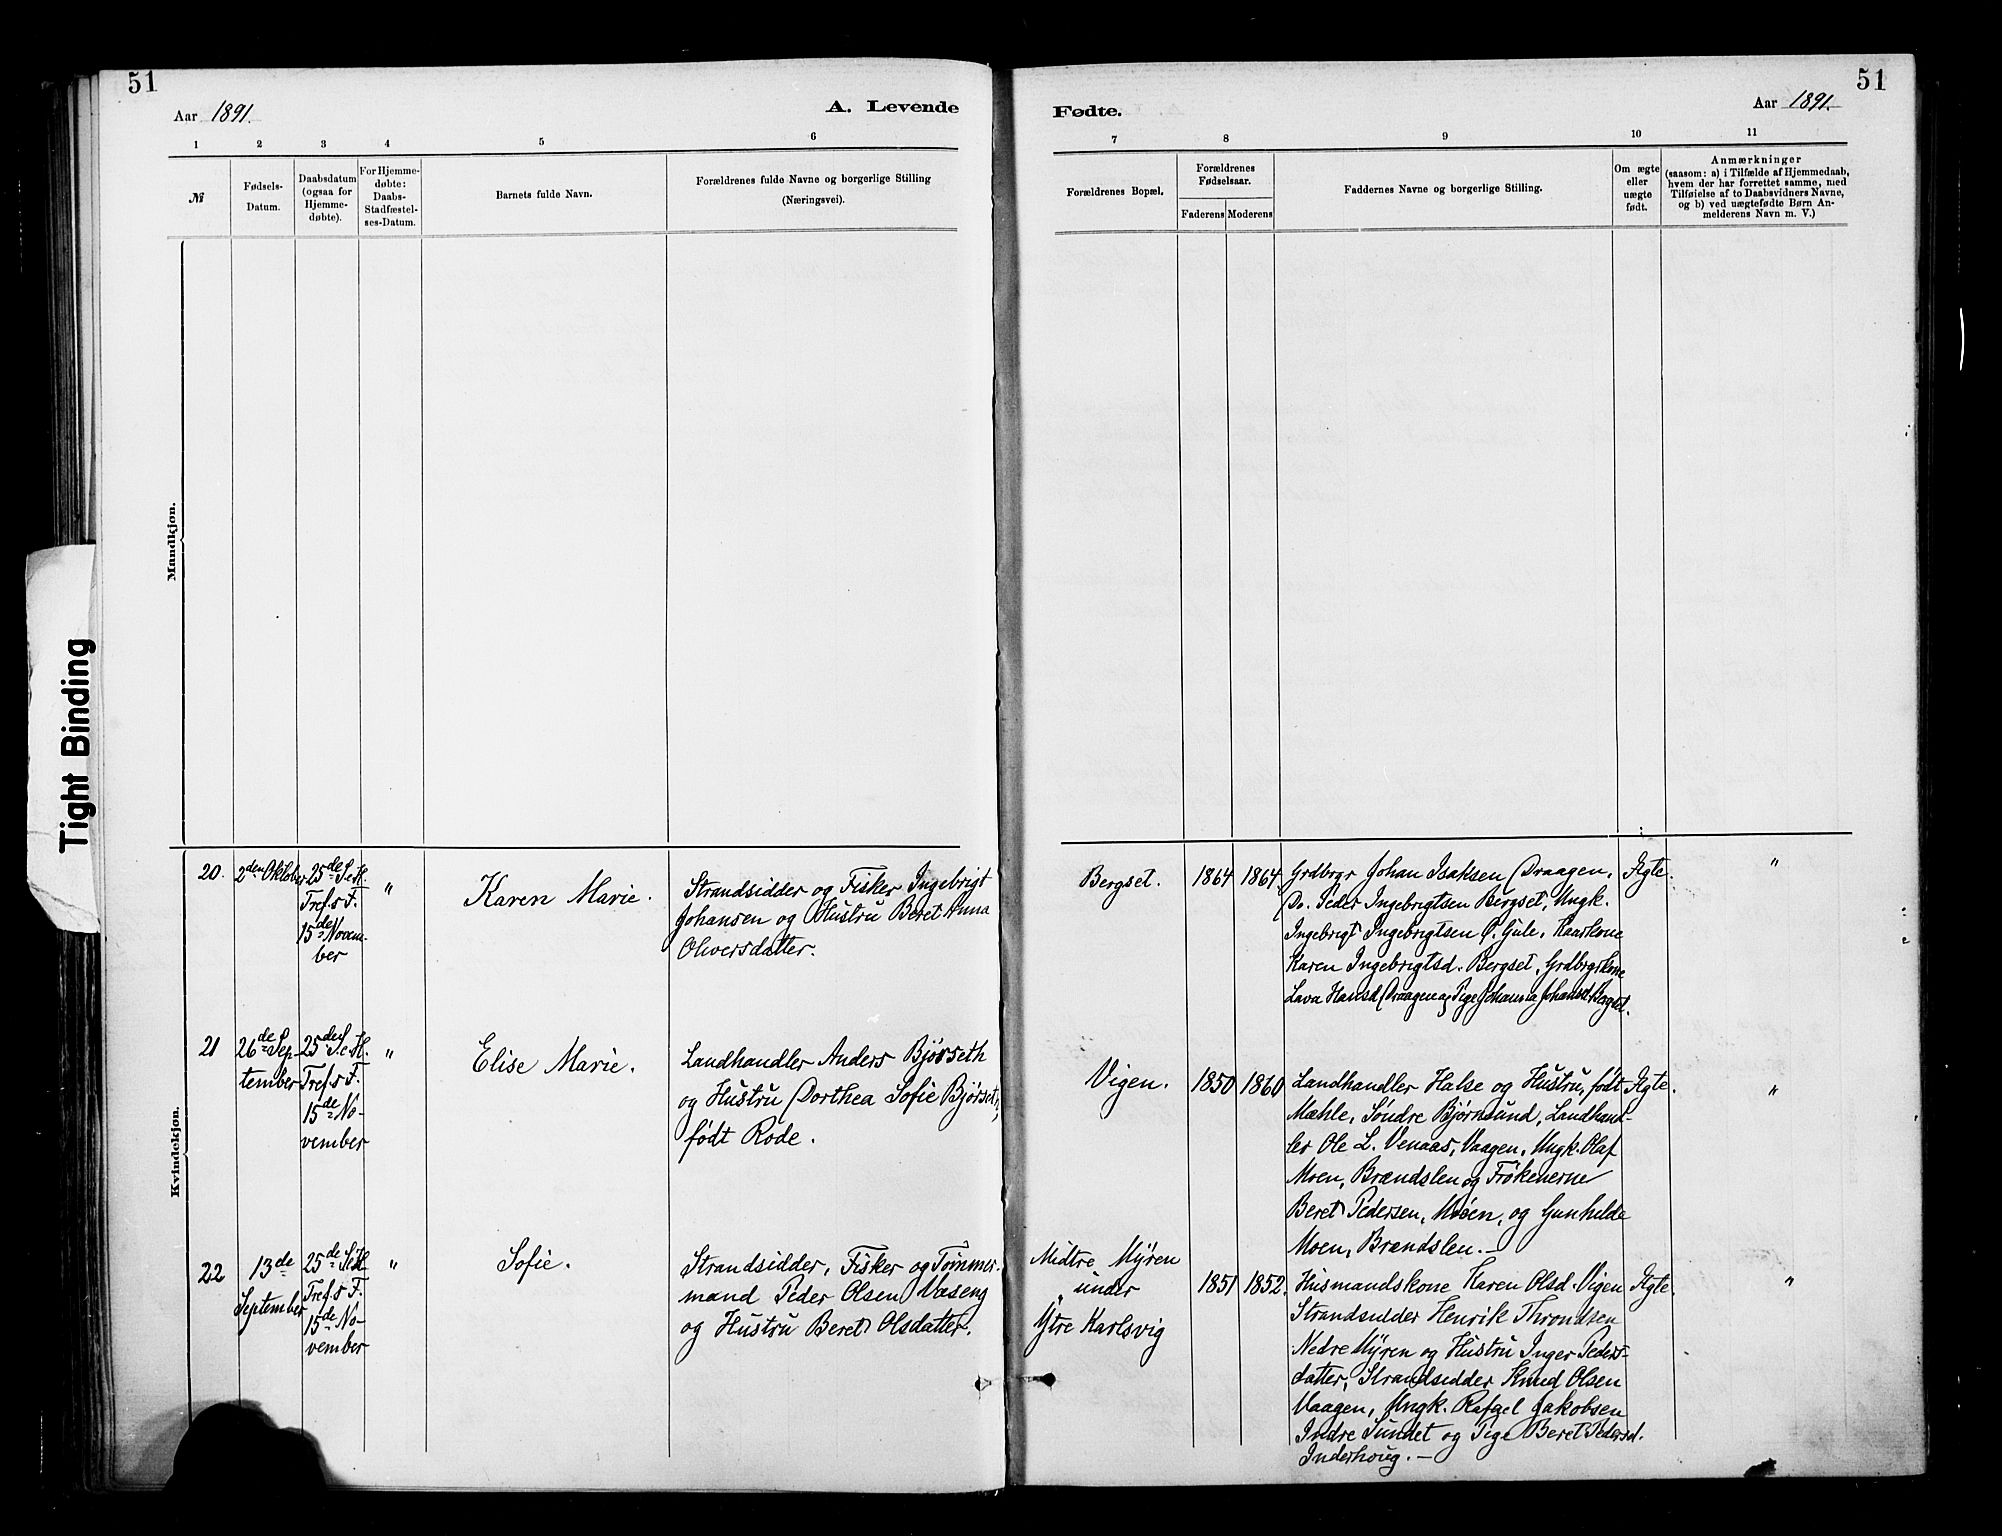 51
Aar 1891.
A. Levende
1 2 3 4 5 6
№
Fødsels-
Datum.
Daabsdatum
(ogsaa for
Hjemme-
døbte).
For Hjemme-
døbte:
Daabs-
Stadfæstel-
ses-Datum.
Barnets fulde Navn.
Forældrenes fulde Navne og borgerlige Stilling
(Næringsvei).
Mandkjøn.
Tight Binding
Kvindekjøn.
20.
2den Oktober
25de S. e. H.
Tref. s F.
15de Novem-
ber
"
Karen Marie.
Strandsidder og Fisker Ingebrigt
Johansen og Hustru Beret Anna
Oliversdatter.
21
26de Sep-
tember
25de S. e. H.
Tref. s F.
15de No-
vember
"
Elise Marie.
Landhandler Anders Bjørseth
og Hustru Dorthea Sofie Bjørset,
født Rode.
22
13de
September
25de S. e. H.
Tref. s F.
15de No-
vember
"
Sofie.
Strandsidder, Fisker og Tømmer-
mand Peder Olsen Vaseng
og Hustru Beret Olsdatter.
51
Fødte.
Aar 1891.
7 8 9 10 11
Forældrenes Bopæl.
Forældrenes
Fødselsaar.
Faderens Moderens
Faddernes Navne og borgerlige Stilling.
Om ægte
eller
uægte
født.
Anmærkninger
(saasom: a) i Tilfælde af Hjemmedaab,
hvem der har forrettet samme, med
Tilføielse af to Daabsvidners Navne,
og b) ved uægtefødte Børn An-
melderens Navn m. V.)
Bergset.
1864
1864
Grdbrgr Johan Isaksen Draagen,
Do. Peder Ingebrigtsen Bergset, Ungk.
Ingebrigt Ingebrigtsen Ø. Gule, Kaarkone
Karen Ingebrigtsd. Bergset, Grdbrgrkone
Lava Hansd. Draagen og Pige Johanna Johansd. Bergset.
Ægte.
"
Vigen.
1850
1860
Landhandler Halse og Hustru, født
Mæhle, Søndre Bjørnsund, Landhand-
ler Ole L. Venaas, Vaagen, Ungk. Olaf
Moen, Brændslen og Frøkenerne
Beret Pedersen, Moen, og Gunhilde
Moen, Brændslen.—
Ægte.
"
Midtre Myren
under
Ytre Karlsvig
1851
1852.
Husmandskone Karen Olsd. Vigen
Strandsidder Henrik Throndsen
Nedre Myren og Hustru Inger Peders-
datter, Strandsidder Knud Olsen
Vaagen, Ungk. Jakobsen
Indre Sundet og Pige Beret Pedersd.
Inderhoug.—
Ægte.
"